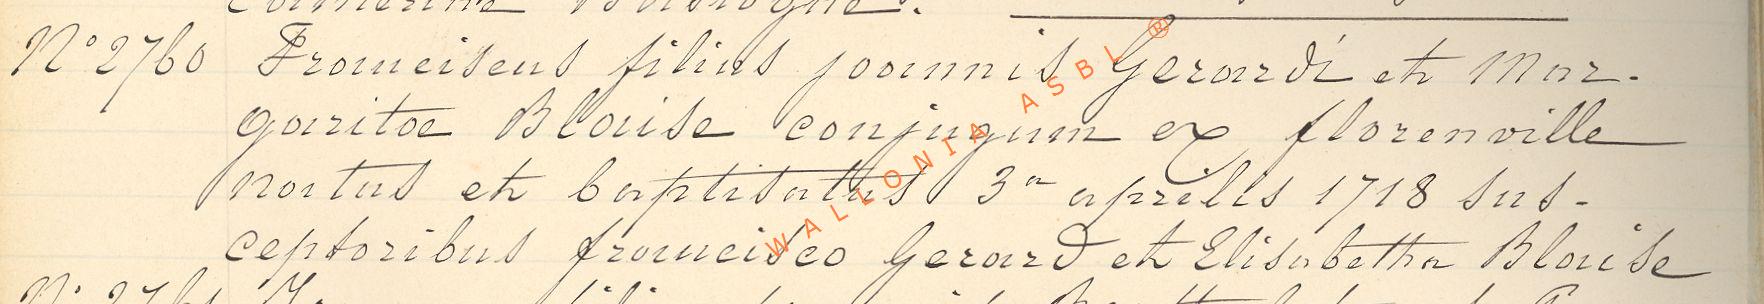 N° 2760 Franciscus filius joannis Gerardi et Mar-
garitae Blaise conjugum ex florenville
natus et baptisatus 3a aprilis 1718 sus-
ceptoribus francisco Gerard et Elisabetha Blaise
WALLONIA ASBL ®